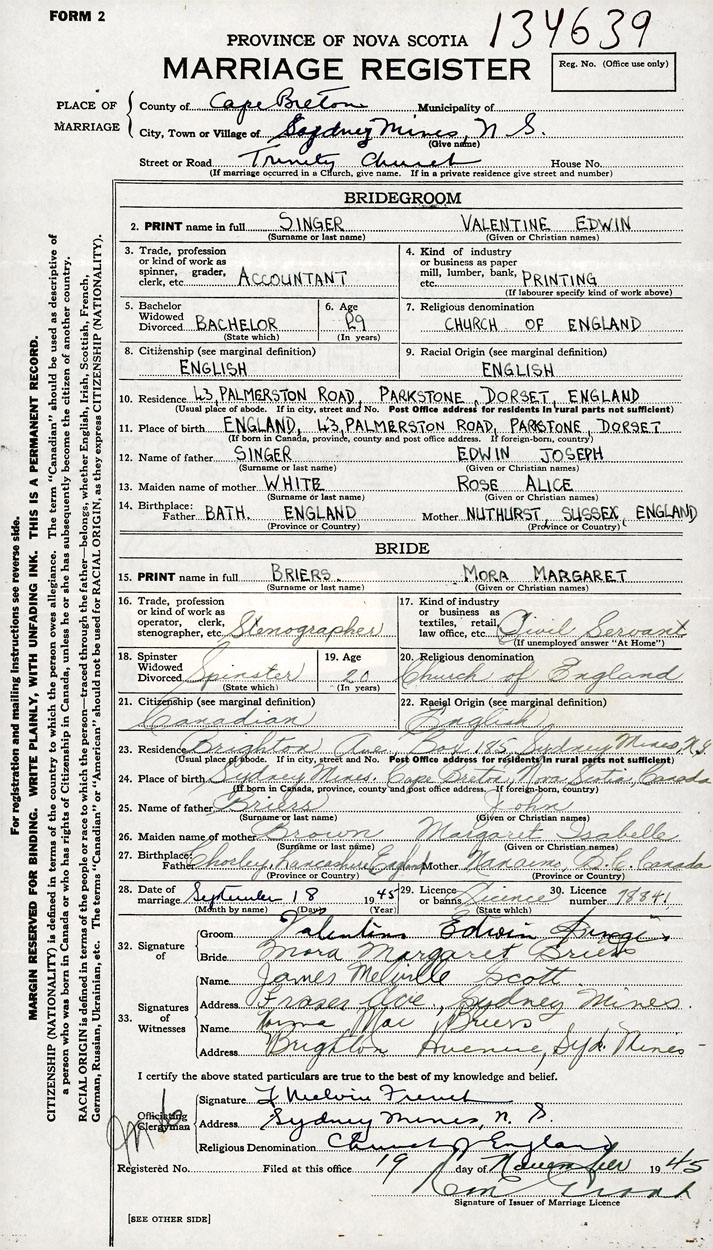 FORM 2
134639
PROVINCE OF NOVA SCOTIA
MARRIAGE REGISTER
Reg. No. (Office use only)
PLACE OF MARRIAGE
County of Cape Breton Municipality of
City, Town or Village of Sydney Mines, N.S.
(Give name)
Street or Road Trinity Church House No.
(If marriage occurred in a Church, give name. If in a private residence give street and number)
BRIDEGROOM
2. PRINT name in full SINGER VALENTINE EDWIN
(Surname or last name) (Given or Christian names)
3. Trade, profession or kind of work as spinner, grader, clerk, etc. ACCOUNTANT
4. Kind of industry or business as paper mill, lumber, bank, etc. PRINTING
(If labourer specify kind of work above)
5. Bachelor Widowed Divorced BACHELOR
(State which)
6. Age 29
(In years)
7. Religious denomination
CHURCH OF ENGLAND
8. Citizenship (see marginal definition)
ENGLISH
9. Racial Origin (see marginal definition)
ENGLISH
10. Residence 43, PALMERSTON ROAD, PARKSTONE, DORSET, ENGLAND
(Usual place of abode. If in city, street and No. Post Office address for residents in rural parts not sufficient)
11. Place of birth ENGLAND, 43, PALMERSTON ROAD, PARKSTONE, DORSET
(If born in Canada, province, county and post office address. If foreign-born, country)
12. Name of father SINGER EDWIN JOSEPH
(Surname or last name) (Given or Christian names)
13. Maiden name of mother WHITE ROSE ALICE
(Surname or last name) (Given or Christian names)
14. Birthplace: Father BATH. ENGLAND Mother NUTHURST, SUSSEX, ENGLAND
(Province or Country) (Province or Country)
BRIDE
15. PRINT name in full BRIERS. MORA MARGARET
(Surname or last name) (Given or Christian names)
16. Trade, profession or kind of work as operator, clerk, stenographer, etc. Stenographer
17. Kind of industry or business as textiles, retail, law office, etc. Civil Servant
(If unemployed answer "At Home")
18. Spinster Widowed Divorced Spinster
(State which)
19. Age 20
(In years)
20. Religious denomination
Church of England
21. Citizenship (see marginal definition)
Canadian
22. Racial Origin (see marginal definition)
English
23. Residence Brighton Ave., Box 185, Sydney Mines, N.S.
(Usual place of abode. If in city, street and No. Post Office address for residents in rural parts not sufficient)
24. Place of birth Sydney Mines. Cape Breton, Nova Scotia, Canada
(If born in Canada, province, county and post office address. If foreign-born, country)
25. Name of father Briers John
(Surname or last name) (Given or Christian names)
26. Maiden name of mother Brown Margaret Isabelle
(Surname or last name) (Given or Christian names)
27. Birthplace: Father Chorley, Lancashire, England Mother Nanaimo, B.C. Canada
(Province or Country) (Province or Country)
28. Date of marriage September 18 1945
(Month by name) (Day) (Year)
29. Licence or banns Licence
(State which)
30. Licence number 78841
32. Signature of
Groom Valentine Edwin Singer
Bride Mora Margaret Briers
33. Signatures of Witnesses
Name James Melville Scott
Address Fraser Ave, Sydney Mines.
Name Norma Mae Briers
Address Brighton Avenue, Syd. Mines
I certify the above stated particulars are true to the best of my knowledge and belief.
Officiating Clergyman
Signature Melvin French
Address Sydney Mines, N.S.
Religious Denomination Church of England
Registered No. Filed at this office 19 day of November 1945
Signature of Issuer of Marriage Licence
[SEE OTHER SIDE]
For registration and mailing instructions see reverse side.
MARGIN RESERVED FOR BINDING. WRITE PLAINLY, WITH UNFADING INK. THIS IS A PERMANENT RECORD.
CITIZENSHIP (NATIONALITY) is defined in terms of the country to which the person owes allegiance. The term "Canadian" should be used as descriptive of
a person who was born in Canada or who has rights of Citizenship in Canada, unless he or she has subsequently become the citizen of another country.
RACIAL ORIGIN is defined in terms of the people or race to which the person—traced through the father—belongs, whether English, Irish, Scottish, French,
German, Russian, Ukrainian, etc. The terms "Canadian" or "American" should not be used for RACIAL ORIGIN, as they express CITIZENSHIP (NATIONALITY).